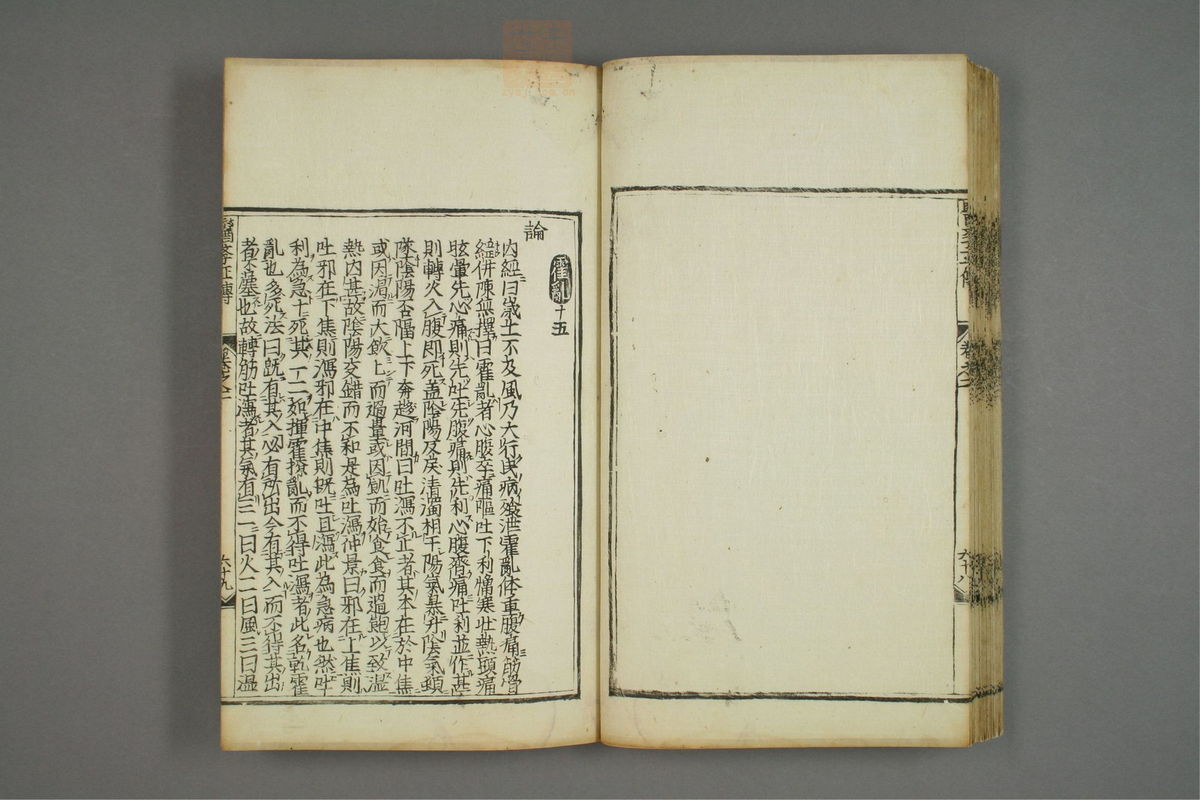 霍亂十五
論
内經曰歲土不及風乃大行民病飧泄霍亂体重腹痛筋骨
繇併陳無擇曰霍亂者心腹卒痛嘔吐下利憎寒壯熱頭痛
眩暈先心痛則先吐先腹痛則先利心腹齊痛吐利並作甚
則轉火入腹即死盖陰陽反戾清濁相干陽氣暴升陰氣頓
墜陰陽否隔上下奔趨河間曰吐瀉不止者其本在於中焦
或因渴而大飲上而過量或因飢而始食食而過飽以致温
熱内甚故陰陽交錯而不和是為吐瀉仲景曰邪在上焦則
吐邪在下焦則瀉邪在中焦則既吐且瀉此為急病也然吐
利為急十死其一二如揮霍撩亂而不得吐瀉者此名乾霍
亂也多死法曰既有其入必有所出今有其入而不得其出
者不墓也故轉筋吐瀉者其氣有三一曰火二曰風三曰温
六十九
六十八